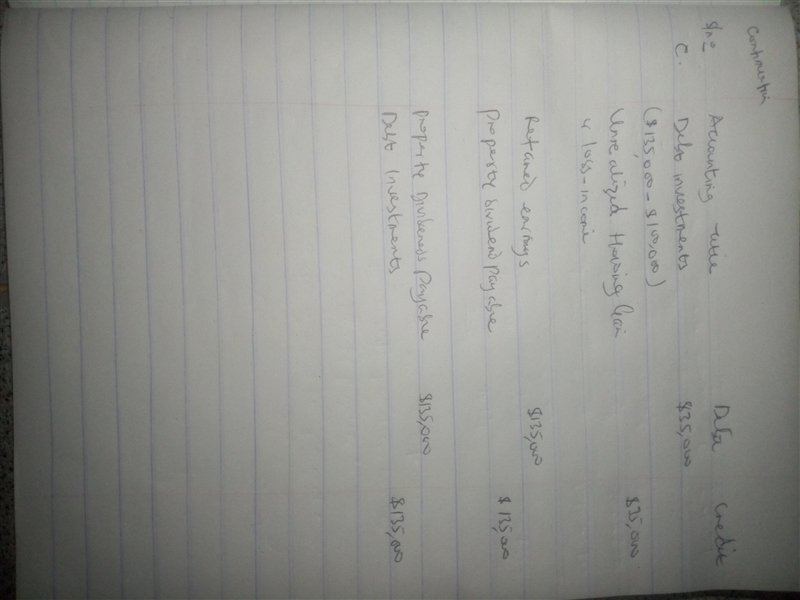 Continuation
S/no Accounting title Debit Credit
C. Debt investments $35,000
($135,000 - $100,000)
Unrealized Holding Gain $35,000
or loss - income
Retained earnings $135,000
Property dividend payable $135,000
Property Dividends Payable $135,000
Debt Investments $135,000